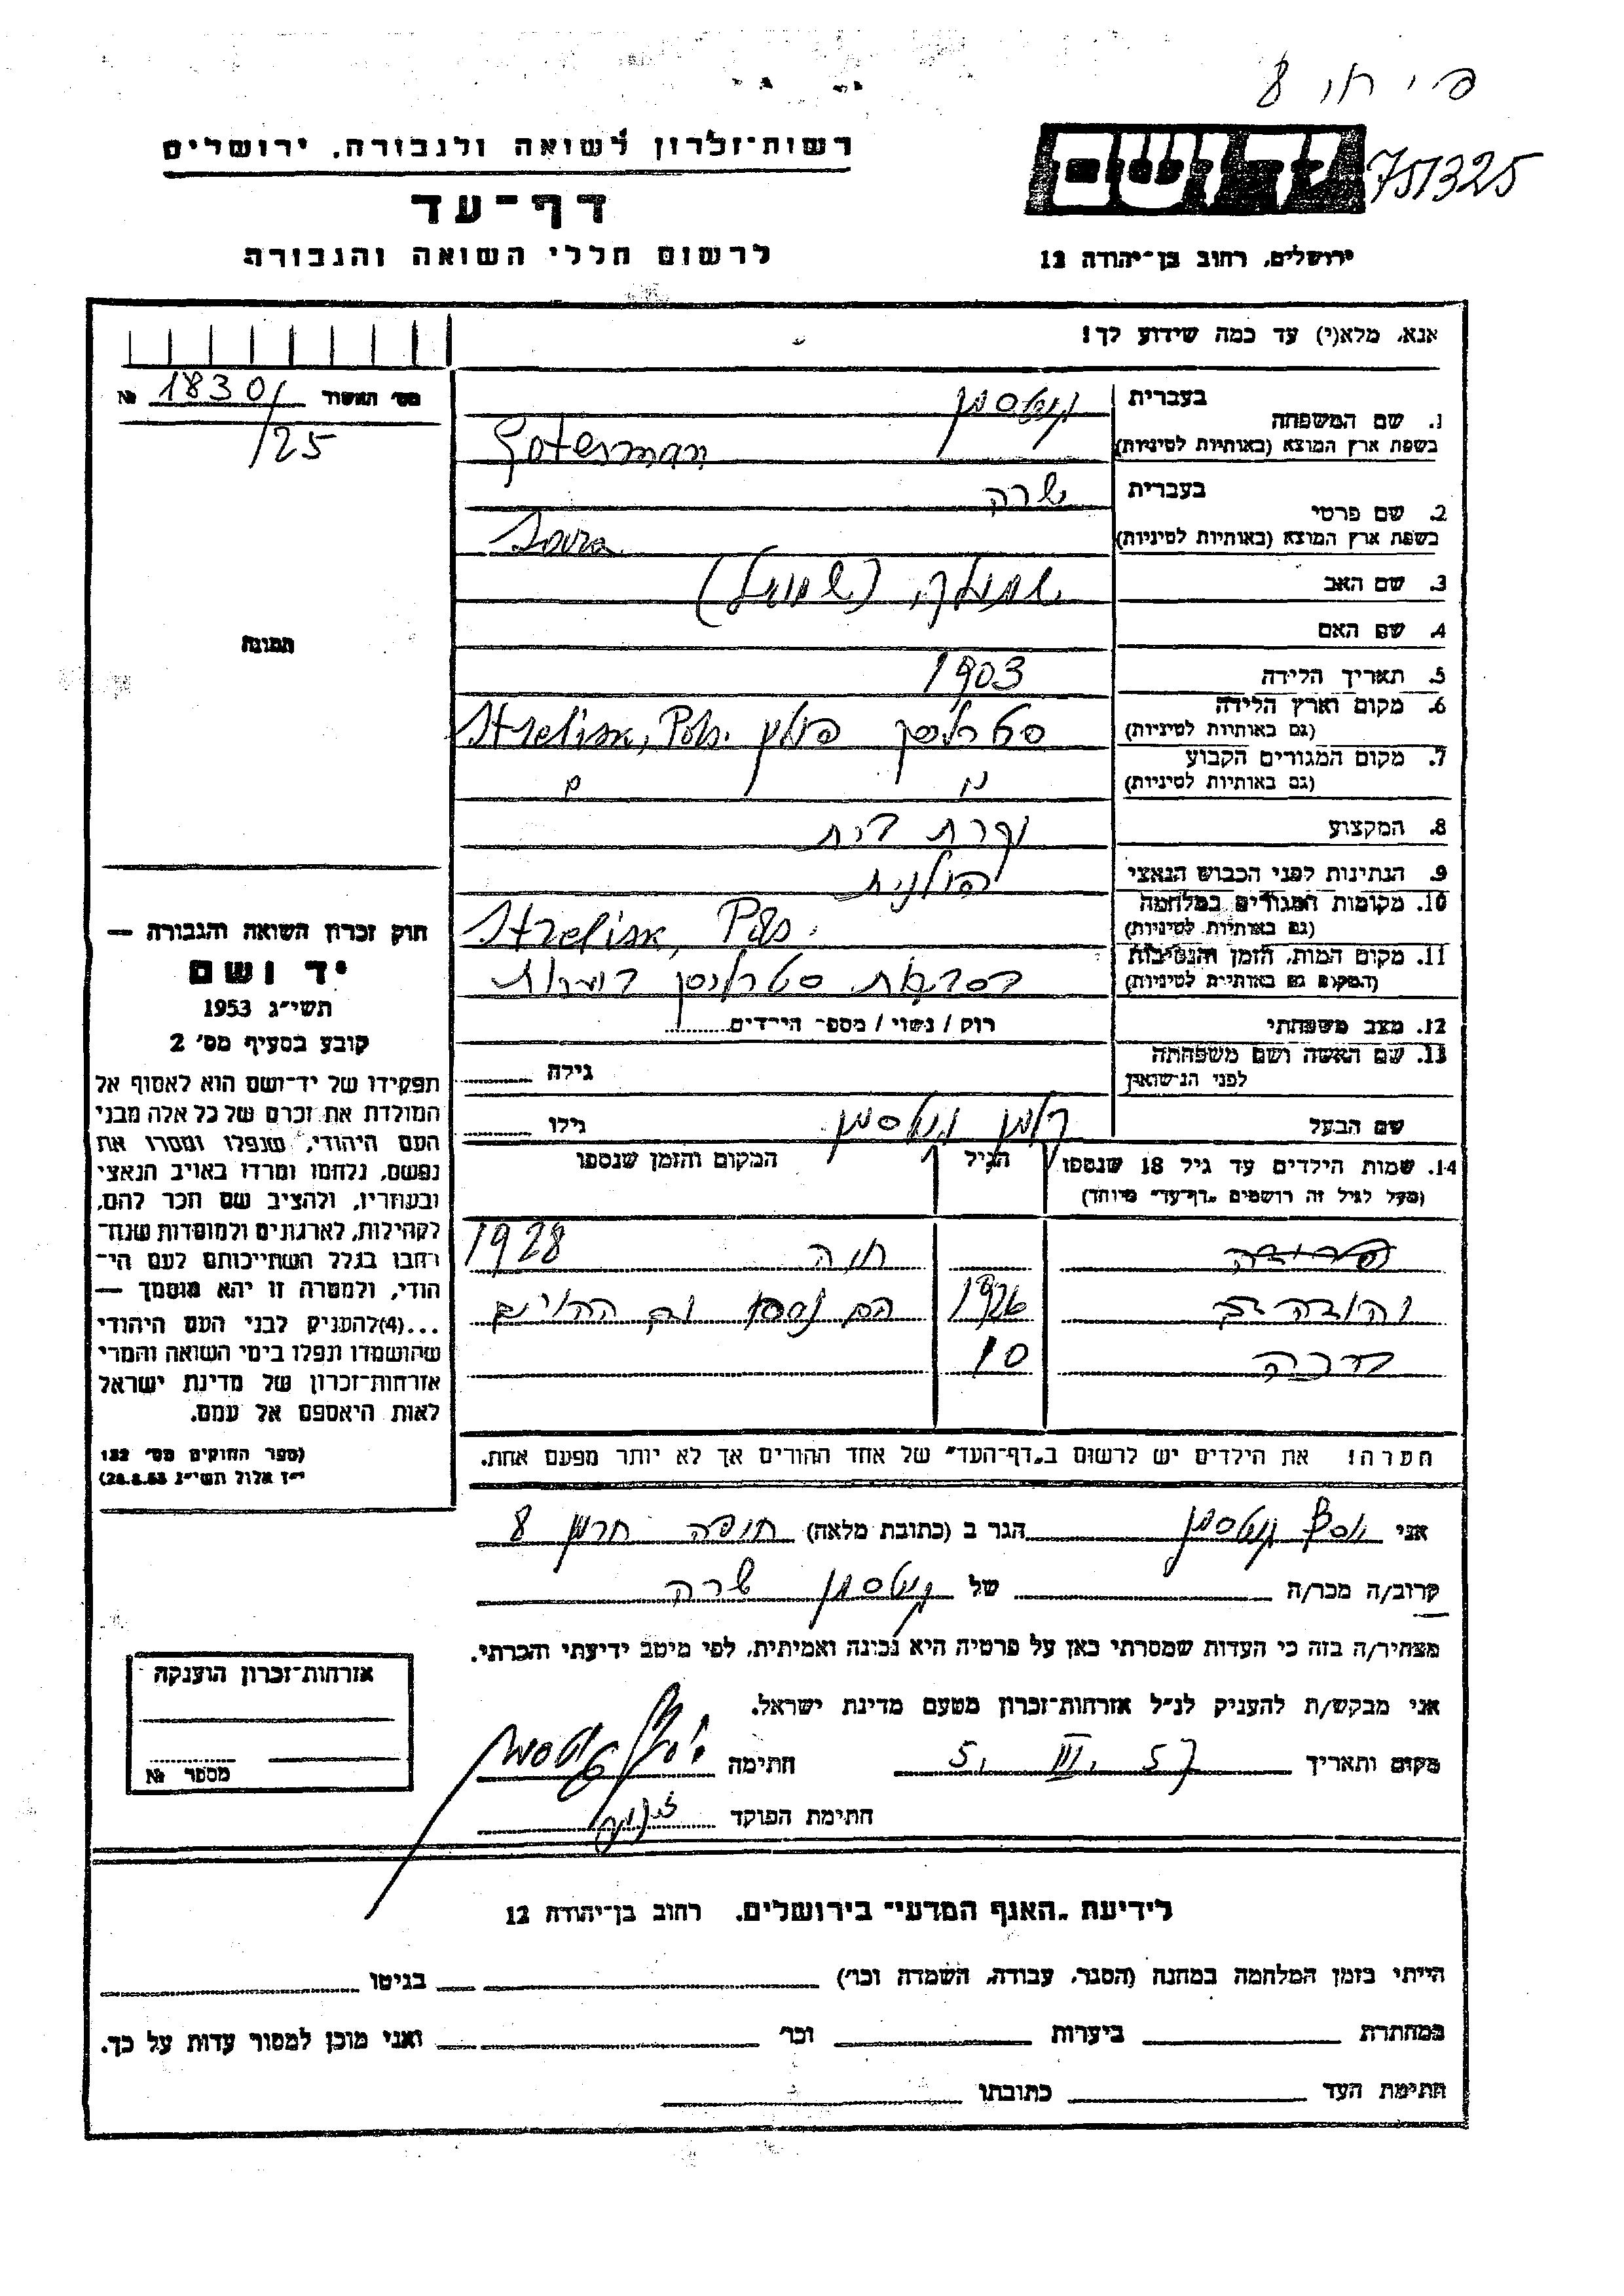 חיפה 8
יד ושם
751325
רשות־זכרון לשואה ולגבורה, ירושלים
דף־עד
לרשום חללי השואה והגבורה
ירושלים, רחוב בן־יהודה 12
אנא, מלא(י) עד כמה שידוע לך!
מס' האשור 18301 №
/25
תמונה
1. שם המשפחה
בעברית גוטסמן
בשפת ארץ המוצא (באותיות לטיניות) Goterman
2. שם פרטי
בעברית שרה
בשפת ארץ המוצא (באותיות לטיניות) Sara
3. שם האב (שמואל)
4. שם האם
5. תאריך הלידה 1903
6. מקום וארץ הלידה
(גם באותיות לטיניות) סטרליסק פולין Strelisk, Pol.
7. מקום המגורים הקבוע
(גם באותיות לטיניות)
8. המקצוע עקרת בית
9. הנתינות לפני הכבוש הנאצי פולנית
10. מקומות המגורים במלחמה
(גם באותיות לטיניות) Strelisk, Pol.
11. מקום המות, הזמן והנסיבות
(המקום גם באותיות לטיניות) סטרליסק
12. מצב משפחתי רוק / נשוי / מספר הילדים
13. שם האשה ושם משפחתה
לפני הנישואין גילה
שם הבעל גוטסמן גילו
14. שמות הילדים עד גיל 18 שנספו הגיל המקום והזמן שנספו
(מעל לגיל זה רושמים "דף־עד" מיוחד)
חוה 1928
1926 הם נספו עם ההורים
10
הערה! את הילדים יש לרשום ב"דף־העד" של אחד ההורים אך לא יותר מפעם אחת.
חוק זכרון השואה והגבורה —
יד ושם
תשי"ג 1953
קובע בסעיף מס' 2
תפקידו של יד־ושם הוא לאסוף אל
המולדת את זכרם של כל אלה מבני
העם היהודי, שנפלו ומסרו את
נפשם, נלחמו ומרדו באויב הנאצי
ובעוזריו, ולהציב שם וזכר להם,
לקהילות, לארגונים ולמוסדות שנח־
רבו בגלל השתייכותם לעם הי־
הודי, ולמטרה זו יהא מוסמך —
...(4)להעניק לבני העם היהודי
שהושמדו ונפלו בימי השואה והמרי
אזרחות־זכרון של מדינת ישראל
לאות היאספם אל עמם.
(ספר החוקים מס' 132
י"ז אלול תשי"ג 28.8.53)
אני יוסף גוטסמן הגר ב (כתובת מלאה) חיפה 8
קרוב/ה מכר/ה של גוטסמן שרה
מצהיר/ה בזה כי העדות שמסרתי כאן על פרטיה היא נכונה ואמיתית, לפי מיטב ידיעתי והכרתי.
אני מבקש/ת להעניק לנ"ל אזרחות־זכרון מטעם מדינת ישראל.
מקום ותאריך 5. III. 57 חתימה
חתימת הפוקד
אזרחות־זכרון הוענקה
מספר №
לידיעת "האגף המדעי" בירושלים. רחוב בן־יהודה 12
הייתי בזמן המלחמה במחנה (הסגר, עבודה, השמדה וכו') בגיטו
במחתרת ביערות וכו' ואני מוכן למסור עדות על כך.
חתימת העד כתובתו